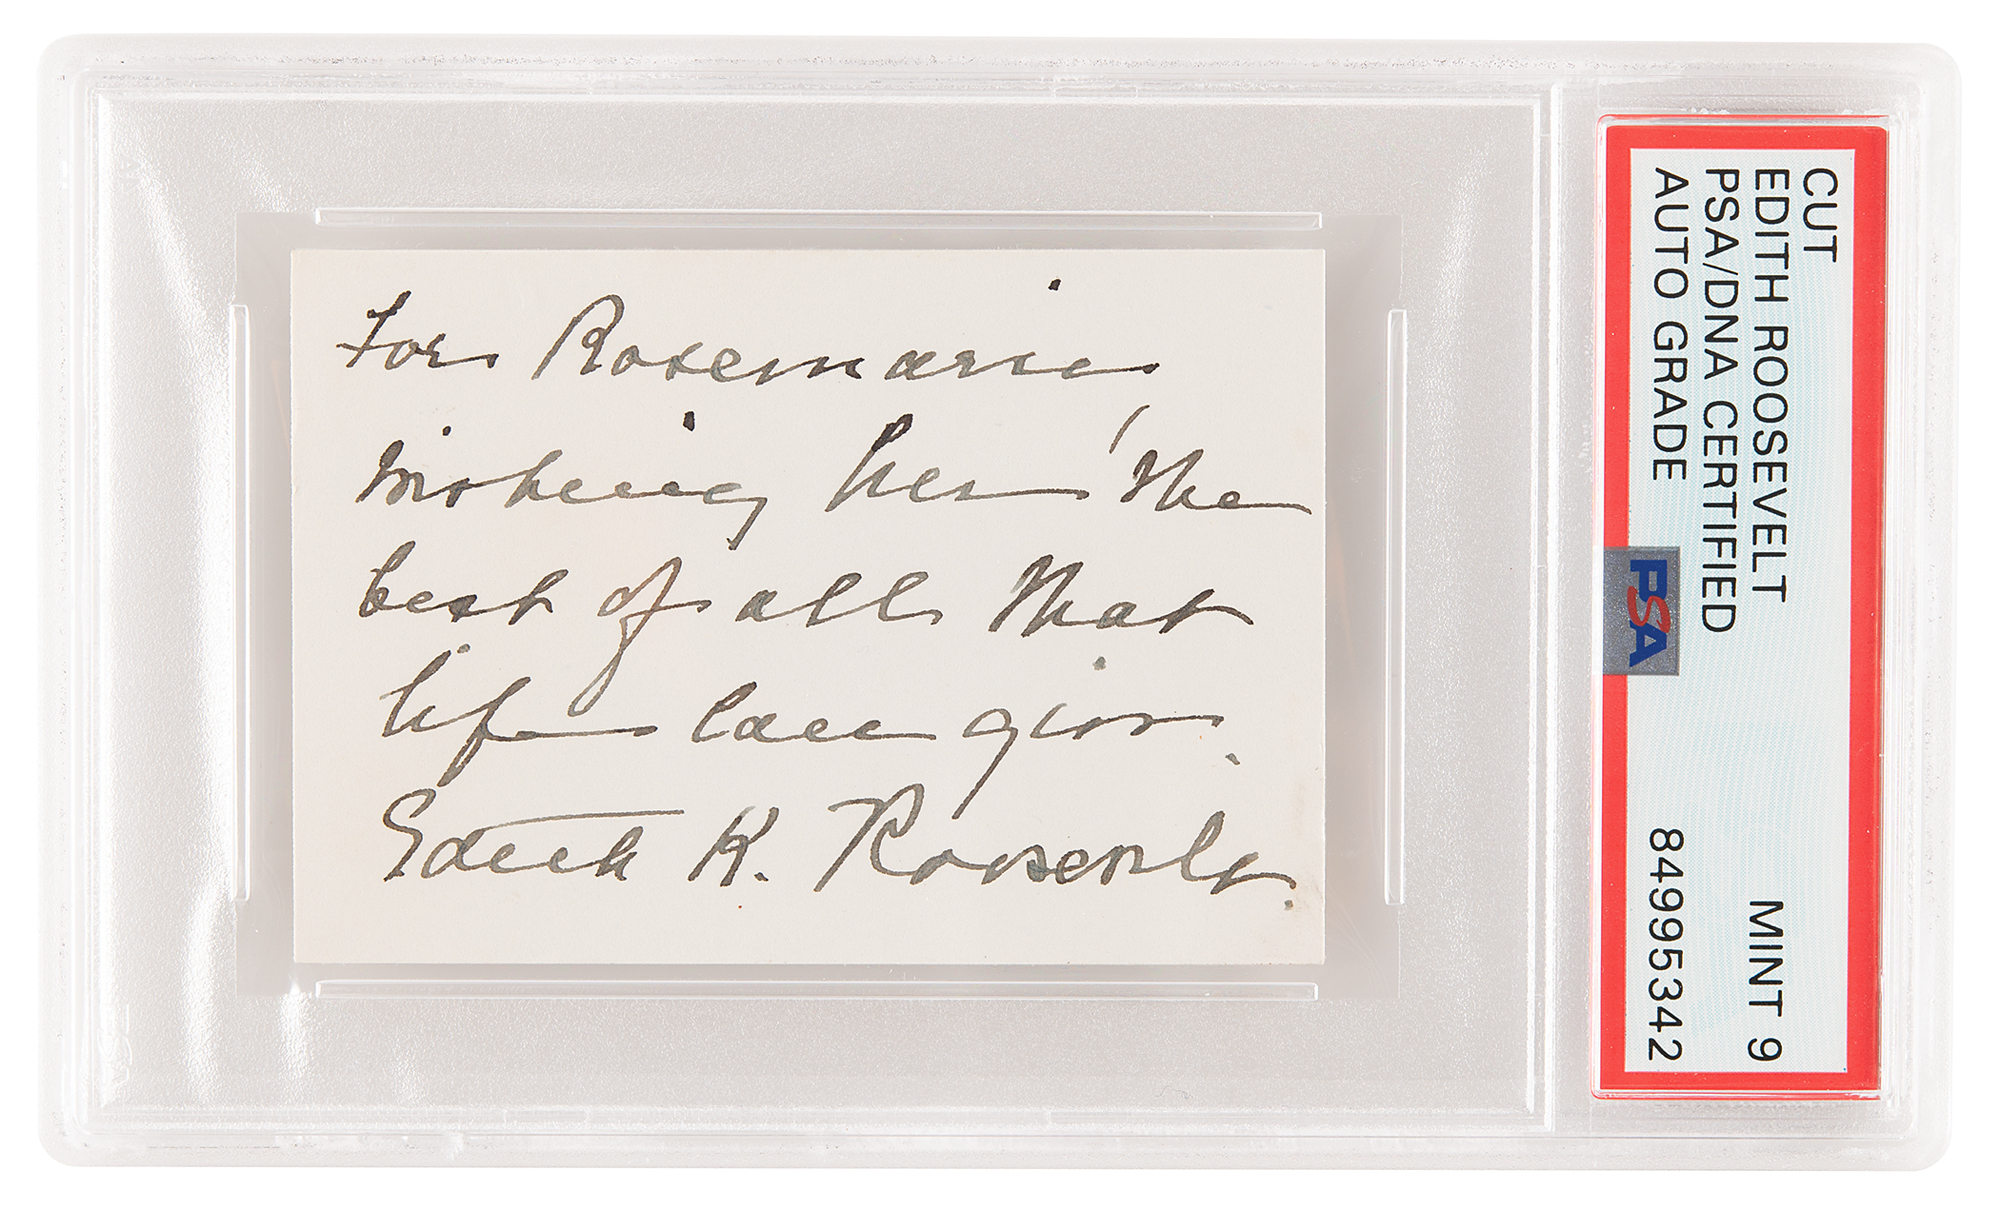 For Rosemarie
wishing her the
best of all that
life can give.
Edith K. Roosevelt.
CUT
EDITH ROOSEVELT
PSA/DNA CERTIFIED
AUTO GRADE
MINT 9
84995342
PSA